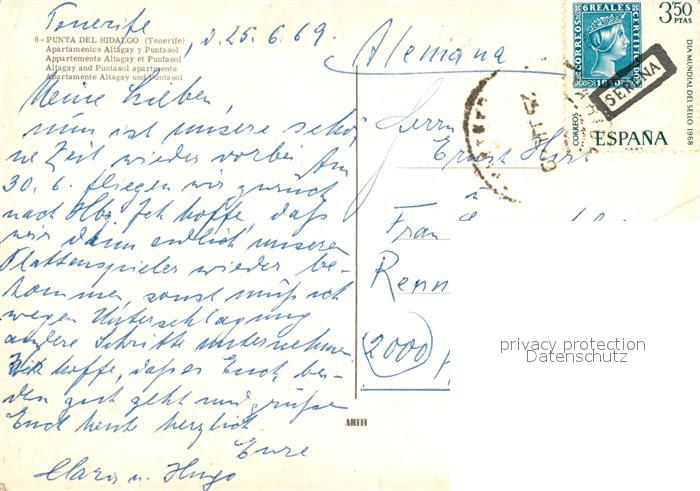 Tenerife, d. 25.6.69.
6 - PUNTA DEL HIDALGO (Tenerife)
Apartamentos Altagay y Puntasol
Appartements Altagay et Puntasol
Altagay and Puntasol apartments
Apartamente Altagay und Puntasol
Meine Lieben,
nun ist unsere schö-
ne Zeit wieder vorbei. Am
30. 6. fliegen wir zurück
nach Hbg. Ich hoffe, daß
wir dann endlich unseren
Plattenspieler wieder be-
kommen, sonst muß ich
wegen Unterschlagung
andere Schritte unternehmen.
Wir hoffe, daß es Euch bei-
den gut geht und grüßen
Euch heute herzlich
Eure
Clara u. Hugo
ARTFI
Alemana
Herrn
Ernst
u
Frau
Renn
2000
6 REALES
CORREOS
CERTIFICADO
1850
3'50
PTAS
DIA MUNDIAL DEL SELLO 1968
CORREOS
ESPAÑA
SERENA
privacy protection
Datenschutz